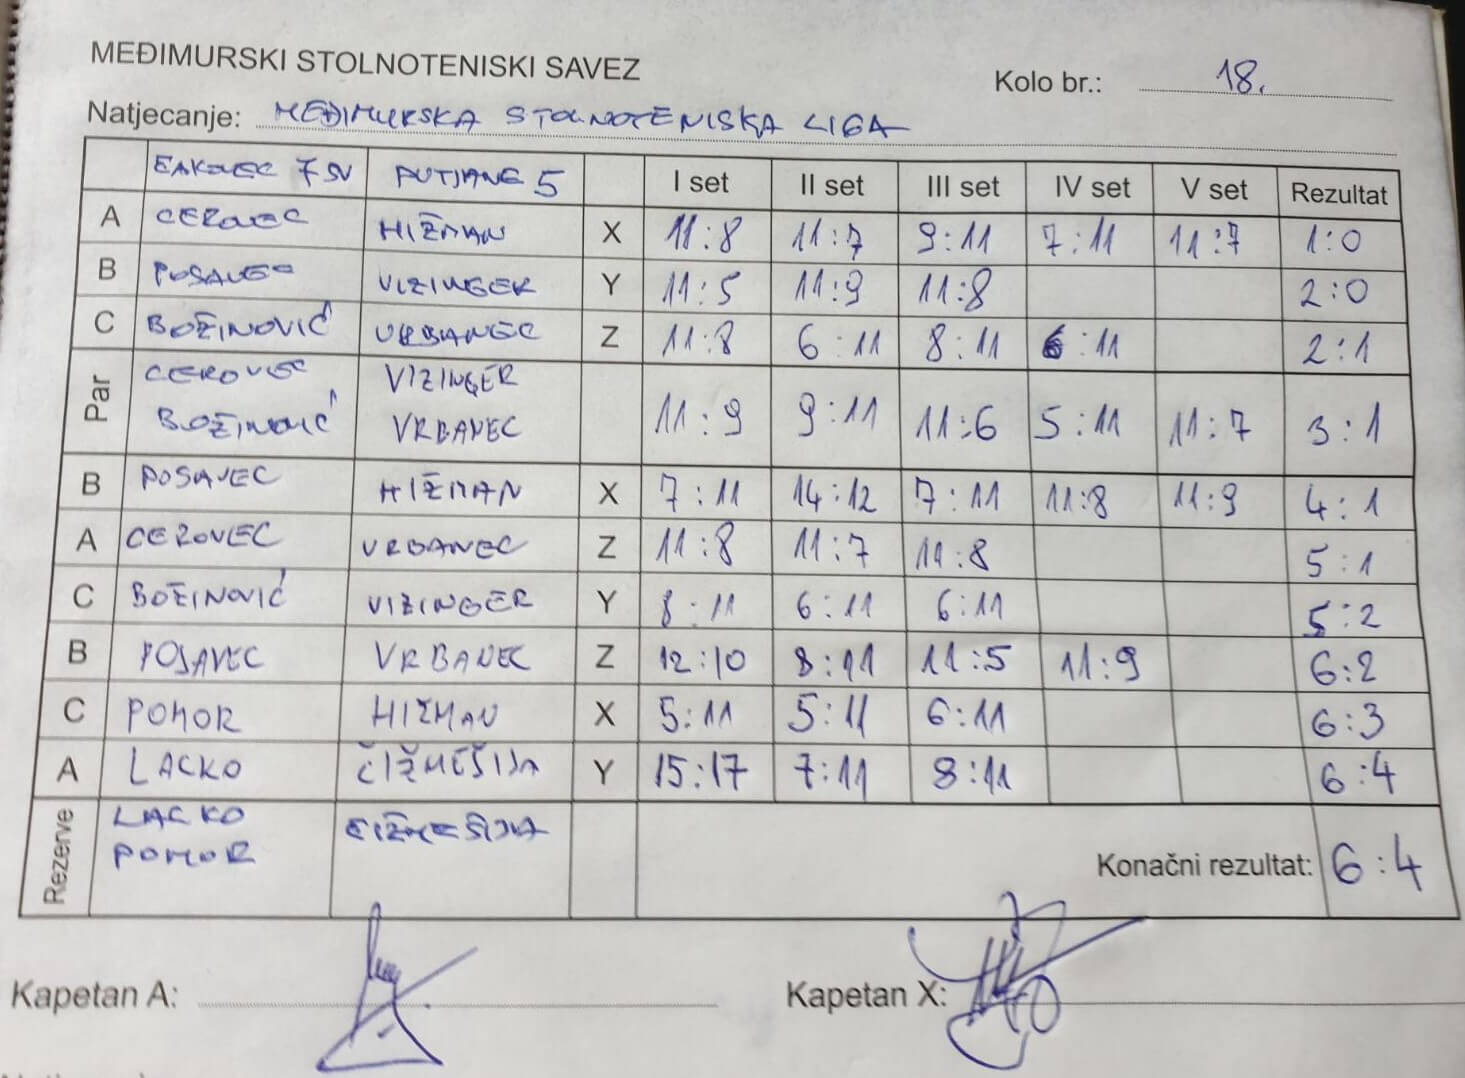 MEĐIMURSKI STOLNOTENISKI SAVEZ
Kolo br.: 18.
Natjecanje: MEĐIMURSKA STOLNOTENISKA LIGA
ČAKOVEC 7 SV PUTJANE 5 I set II set III set IV set V set Rezultat
A CEROVEC HIŽMAN X 11:8 11:7 9:11 7:11 11:7 1:0
B POSAVEC VIZINGER Y 11:5 11:9 11:8 2:0
C BOŽINOVIĆ VRBANEC Z 11:8 6:11 8:11 6:11 2:1
Par CEROVEC VIZINGER
BOŽINOVIĆ VRBANEC 11:9 9:11 11:6 5:11 11:7 3:1
B POSAVEC HIŽMAN X 7:11 14:12 7:11 11:8 11:9 4:1
A CEROVEC VRBANEC Z 11:8 11:7 11:8 5:1
C BOŽINOVIĆ VIZINGER Y 8:11 6:11 6:11 5:2
B POSAVEC VRBANEC Z 12:10 8:11 11:5 11:9 6:2
C POMOR HIŽMAN X 5:11 5:11 6:11 6:3
A LACKO ČIŽMEŠIJA Y 15:17 7:11 8:11 6:4
Rezerve LACKO ČIŽMEŠIJA
POMOR
Konačni rezultat: 6:4
Kapetan A: Kapetan X: